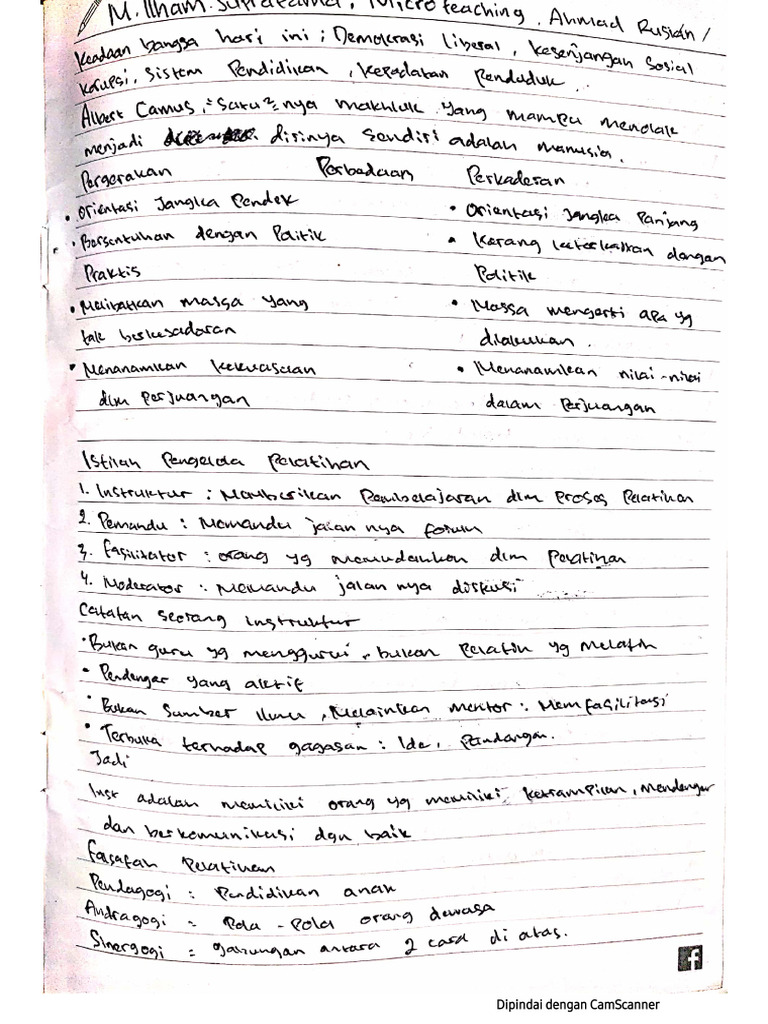 M. Ilham Supratama, Micro teaching, Ahmad Ruslan /
Keadaan bangsa hari ini ; Demokrasi liberal, kesenjangan sosial
korupsi, sistem Pendidikan, kepadatan Penduduk.
Albert Camus, = satu2 nya makhluk yang mampu menolak
menjadi dirinya sendiri adalah manusia.
Pergerakan Perbedaan Perkaderan
• Orientasi Jangka Pendek • Orientasi Jangka Panjang
• Bersentuhan dengan Politik • Karang keterkaitan dengan
Praktis Politik
• Melibatkan massa yang • Massa mengerti apa yg
tak berkesadaran dilakukan.
• Menanamkan kekuasaan • Menanamkan nilai-nilai
dlm Perjuangan dalam Perjuangan
Istilah Pengelola Pelatihan
1. Instruktur : Memberikan Pembelajaran dlm Proses Pelatihan
2. Pemandu : Memandu jalan nya forum
3. Fasilitator : orang yg memudahkan dlm Pelatihan
4. Moderator : Memandu jalan nya diskusi
Catatan seorang instruktur
• Bukan guru yg menggurui, bukan Pelatih yg Melatih
• Pendengar yang aktif
• Bukan Sumber ilmu, Melainkan mentor : Memfasilitasi
• Terbuka terhadap gagasan : Ide, Pandangan.
Jadi
Inst adalah memiliki orang yg memiliki ketrampilan, Mendengar
dan berkomunikasi dgn baik
Falsafah Pelatihan
Pendagogi : Pendidikan anak
Andragogi = Pola - Pola orang dewasa
Sinergogi = gabungan antara 2 cara di atas.
f
Dipindai dengan CamScanner